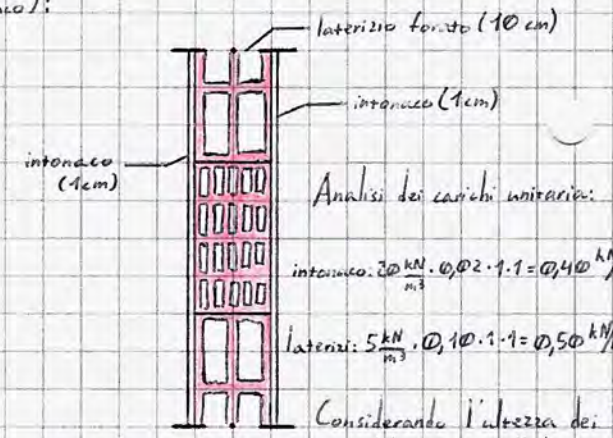 laterizio forato (10 cm)
intonaco (1cm)
intonaco
(1cm)
Analisi dei carichi unitaria:
intonaco: 20 kN/m³ · 0,02 · 1 · 1 = 0,40 kN/
laterizi: 5 kN/m³ · 0,10 · 1 · 1 = 0,50 kN/
Considerando l'altezza dei